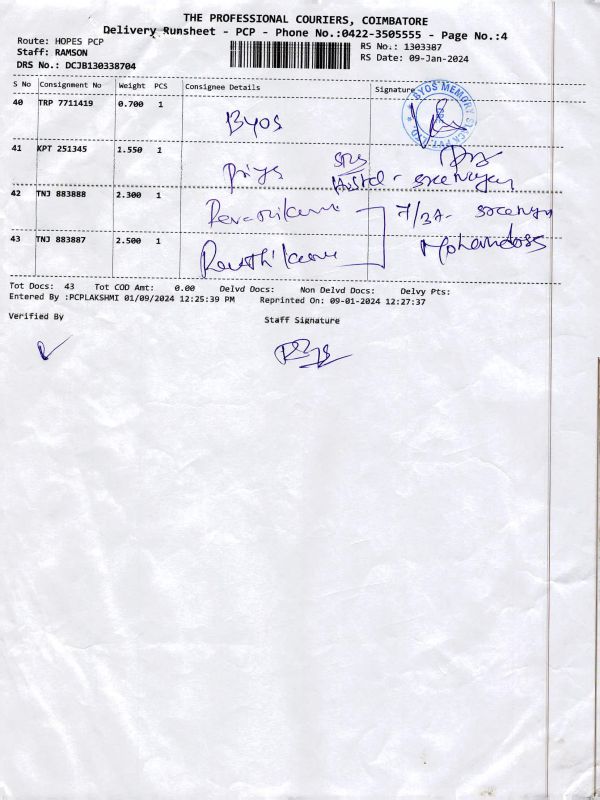 THE PROFESSIONAL COURIERS, COIMBATORE
Delivery Runsheet - PCP - Phone No.:0422-3505555 - Page No.:4
Route: HOPES PCP
Staff: RAMSON
DRS No.: DCJB130338704
RS No.: 1303387
RS Date: 09-Jan-2024
S No Consignment No Weight PCS Consignee Details Signature
40 TRP 7711419 0.700 1 Byos
BYOS MEMORY
41 KPT 251345 1.550 1 Priya SRS
Hostel -
42 TNJ 883888 2.300 1 7/3A-
43 TNJ 883887 2.500 1 Mohandoss
Tot Docs: 43 Tot COD Amt: 0.00 Delvd Docs: Non Delvd Docs: Delvy Pts:
Entered By :PCPLAKSHMI 01/09/2024 12:25:39 PM Reprinted On: 09-01-2024 12:27:37
Verified By Staff Signature